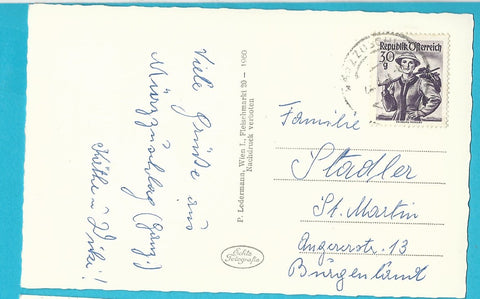 Viele Grüße aus
Mürzzuschlag
Käthe u.
P. Ledermann, Wien I., Fleischmarkt 20 — 1960
Nachdruck verboten
Echte
Fotografie
Republik Österreich
30
g
Familie
Stadler
St. Martin
Angererstr. 13
Burgenland